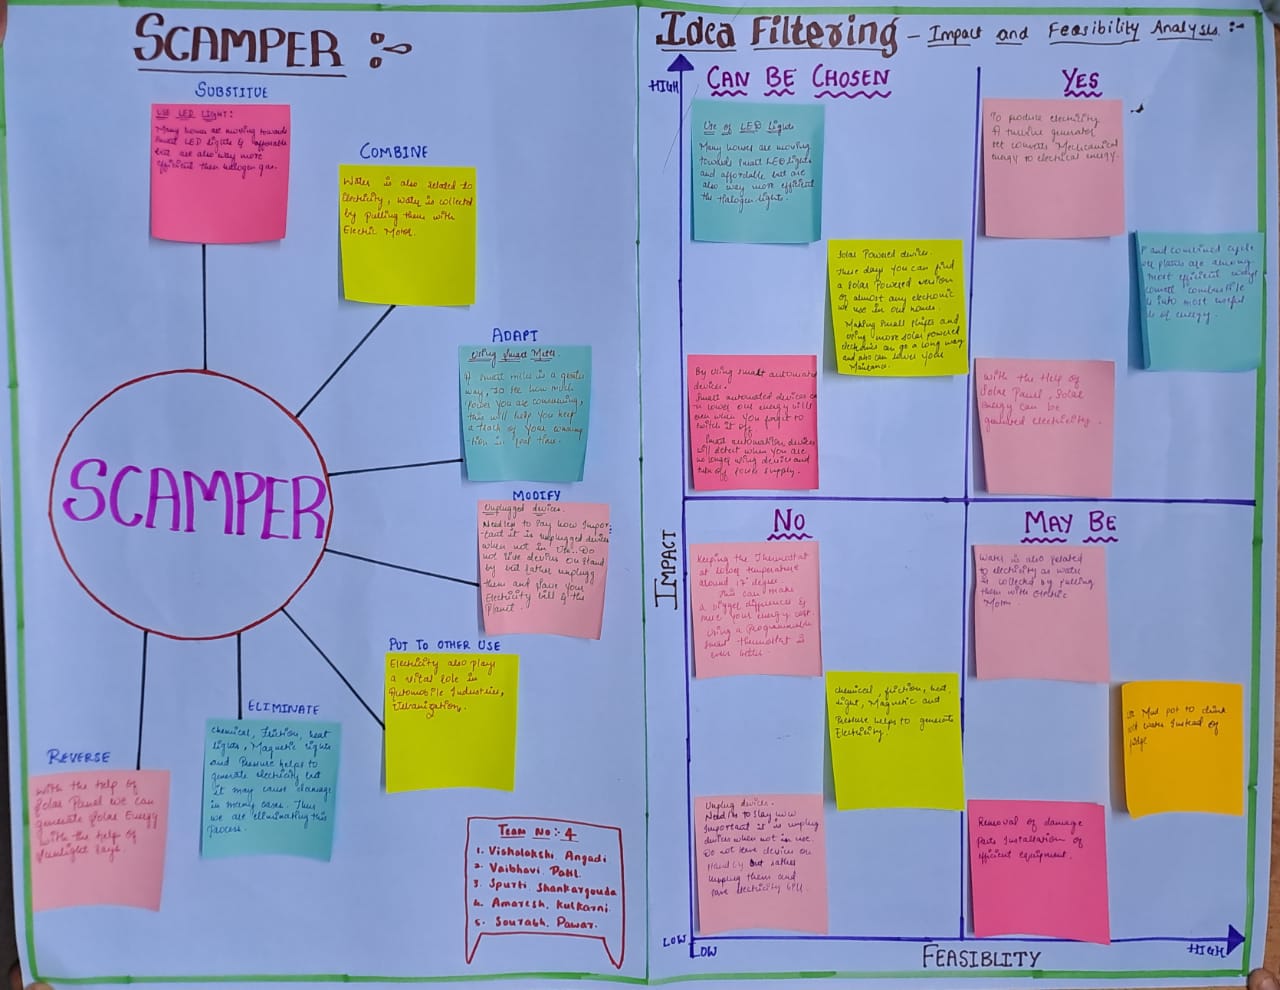 SCAMPER :-
SUBSTITUE
USE LED LIGHT:
Many homes are moving towards
Smart LED Lights & affordable
but are also way more
efficient then halogen gas.
COMBINE
Water is also related to
Electricity, Water is collected
by pulling them with
Electric Motor.
ADAPT
Using Smart Meter.
A smart miter is a greate
way, To see how much
power you are consuming,
this will help you keep
a track of your consum
-tion in real time.
MODIFY
Unplugged devices.
Needless to say how impor-
tant it is unplugged devices
when not in use. Do
not live devices on stand
by but rather unplugg
them and save your
Electricity bill & the
Planet.
PUT TO OTHER USE
Electricity also plays
a vital role in
Automobile Industries,
Urbanization.
ELIMINATE
chemical, Friction, heat
lights, Magnetic lights
and Pressure helps to
generate electricity but
it may cause damage
in many cases. Thus
we are eliminating this
process.
REVERSE
With the help of
Solar Panel we can
generate Solar Energy
with the help of
sunlight rays.
SCAMPER
Team No:- 4
1. Vishalakshi Angadi
2. Vaibhavi. Patil.
3. Spurti Shankargouda
4. Amaresh. Kulkarni.
5. Sourabh. Pawar.
Idea Filtering - Impact and Feasibility Analysis :-
HIGH
CAN BE CHOSEN
Use of LED Lights
Many homes are moving
towards Smart LED Lights
and affordable but are
also way more efficient
the Halogen lights.
Solar Powered devices.
These days you can find
a Solar Powered version
of almost any electronic
we use in our homes.
Making small shifts and
using more solar powered
electronics can go a long way
and also can lower your
By using smart automated
devices.
Smart automated devices ca
n lower our energy bills
even when you forget to
switch it off.
Smart automation devices
will detect when you are
no longer using device and
turn off power supply.
YES
To produce electricity
A turbine generator
set converts Mechanical
energy to electrical energy.
P and combined cycle
plants are among
most efficient ways
convert combustible
into most useful
of energy.
With the Help of
Solar Panel, Solar
Energy can be
electricity.
IMPACT
NO
Keeping the Thermostat
at lower temperature
around 17 degree.
This can make
a bigger difference &
your energy cost.
Using a Programmable
smart thermostat is
even better.
chemical, friction, heat,
light, Magnetic and
Pressure helps to generate
Electricity.
Unplug devices.
Needless to say how
important it is unplug
devices when not in use.
Do not leave device on
stand by but rather
unplugg them and
save electricity bill.
MAY BE
Water is also related
to electricity as water
is collected by pulling
them with Electric
Motor.
Mud pot to drink
water instead of
Removal of damage
Parts Installation of
efficient equipment.
LOW
LOW
FEASIBLITY
HIGH